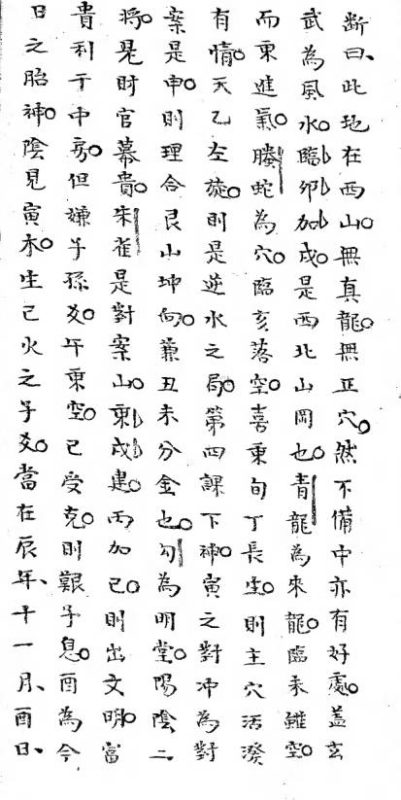 断曰、此地在西山。無真龍。無正穴。然不備中亦有好處。蓋玄
武為風水。臨卯加戌。是西北山岡也。青龍為來龍。臨未雖空。
而乗進氣。螣蛇為穴。臨亥落空。喜乗旬丁長生。則主穴活潑
有情。天乙左旋。則是逆水之局。第四課下神。寅之對冲為對
案是申。則理合艮山坤向。兼丑未分金也。勾為明堂。陽陰二
將。是財官幕貴。朱雀是對案山。乗戌建丙加己。則出文明。富
貴利于中房。但嫌子孫爻。午乗空。已受克。則艱子息。酉為今
日之胎神。陰見寅木。生己火之子爻。當在辰年、十一月、酉日、